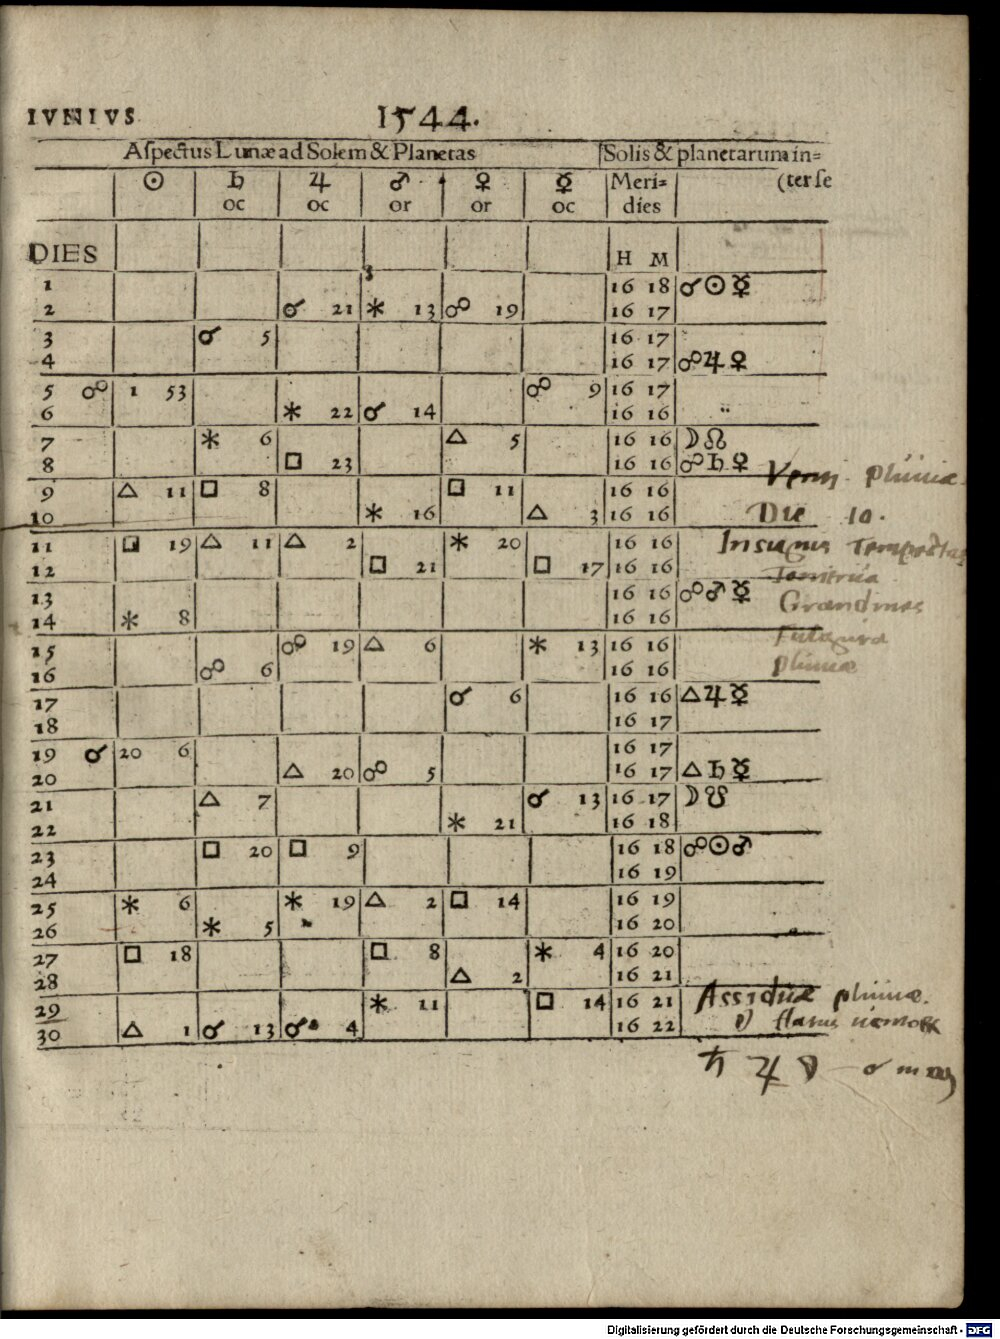 IVNIVS 1544.
Aſpectus Lunæ ad Solem & Planetas Solis & planetarum in=
☉ ♄ ♃ ♂ ♀ ☿ Meri= (ter ſe
oc oc or or oc dies
DIES H M
1 16 18 ☌ ☉ ☿
2 ☌ 21 ⚹ 13 ☍ 19 16 17
3 ☌ 5 16 17
4 16 17 ☍ ♃ ♀
5 ☍ 1 53 ☍ 9 16 17
6 ⚹ 22 ☌ 14 16 16
7 ⚹ 6 △ 5 16 16 ☽ ☊
8 □ 23 16 16 ☍ ♄ ♀
9 △ 11 □ 8 □ 11 16 16
pluuiæ.
10 ⚹ 16 △ 3 16 16
Die 10.
11 □ 19 △ 11 △ 2 ⚹ 20 16 16
Insignis Tempestas
12 □ 21 □ 17 16 16
Tonitrua
13 16 16 ☍ ♂ ☿
Grandines
14 ⚹ 8 16 16
Fulgura
15 ☍ 19 △ 6 ⚹ 13 16 16
pluuiæ
16 ☍ 6 16 16
17 ☌ 6 16 16 △ ♃ ☿
18 16 17
19 ☌ 20 6 16 17
20 △ 20 ☍ 5 16 17 △ ♄ ☿
21 △ 7 ☌ 13 16 17 ☽ ☋
22 ⚹ 21 16 18
23 □ 20 □ 9 16 18 ☍ ☉ ♂
24 16 19
25 ⚹ 6 ⚹ 19 △ 2 □ 14 16 19
26 ⚹ 5 16 20
27 □ 18 □ 8 ⚹ 4 16 20
28 △ 2 16 21
29 ⚹ 11 □ 14 16 21
Assiduæ pluuiæ.
30 △ 1 ☌ 13 ☌ 4 16 22
♄ ♃
Digitalisierung gefördert durch die Deutsche Forschungsgemeinschaft - DFG